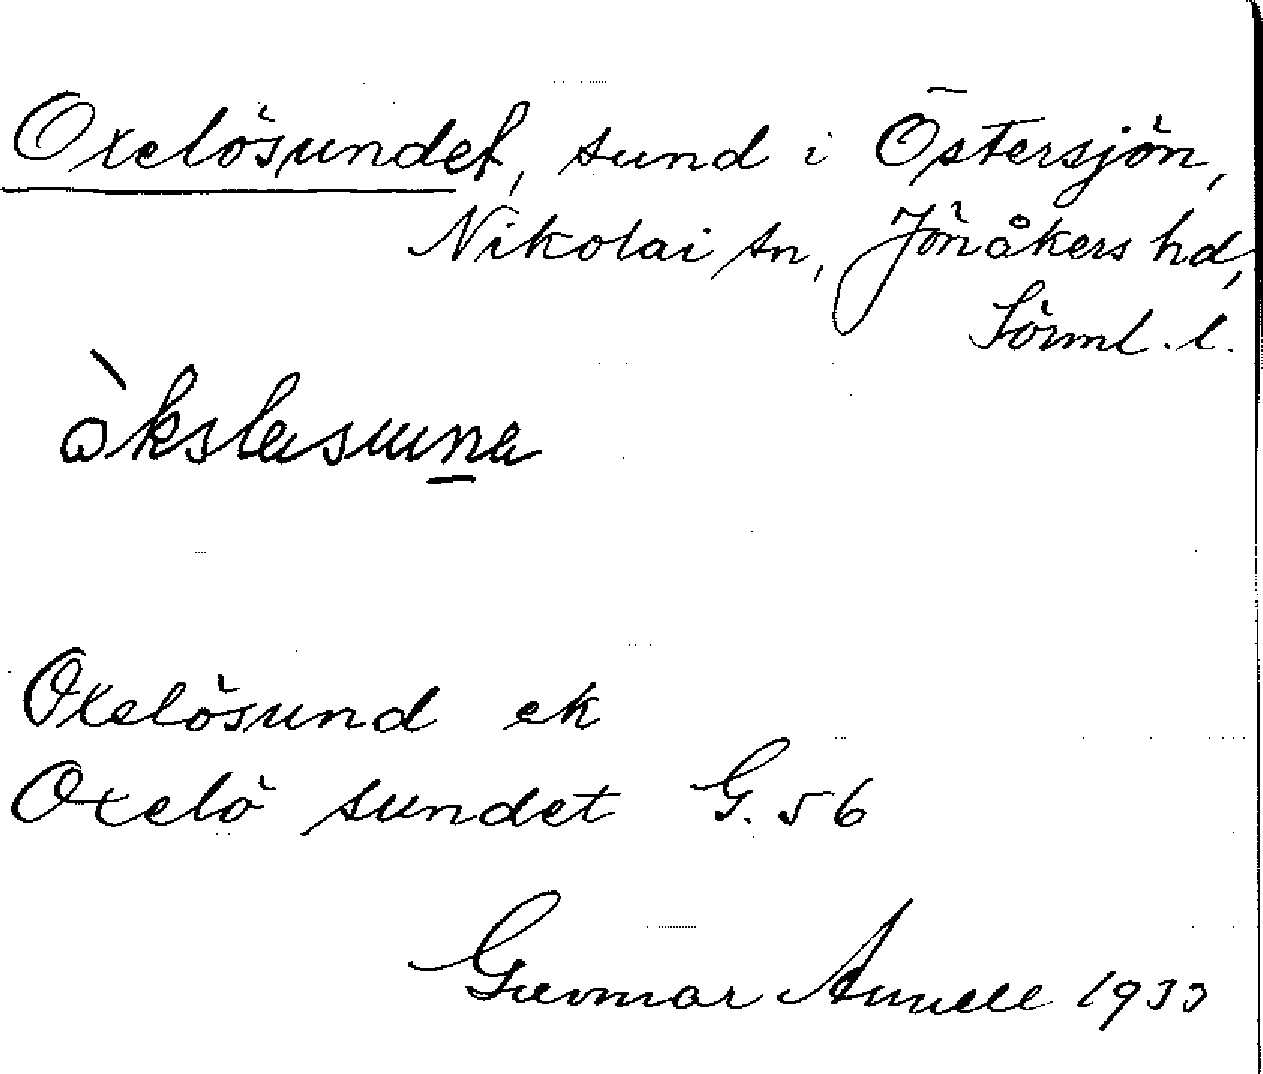 Oxelösundet, sund i Östersjön,
Nikolai sn, Jönåkers hd,
Sörml. l.
òkslasuna
Oxelösund ek
Oxelö sundet G. 56
Gunnar Annell 1933